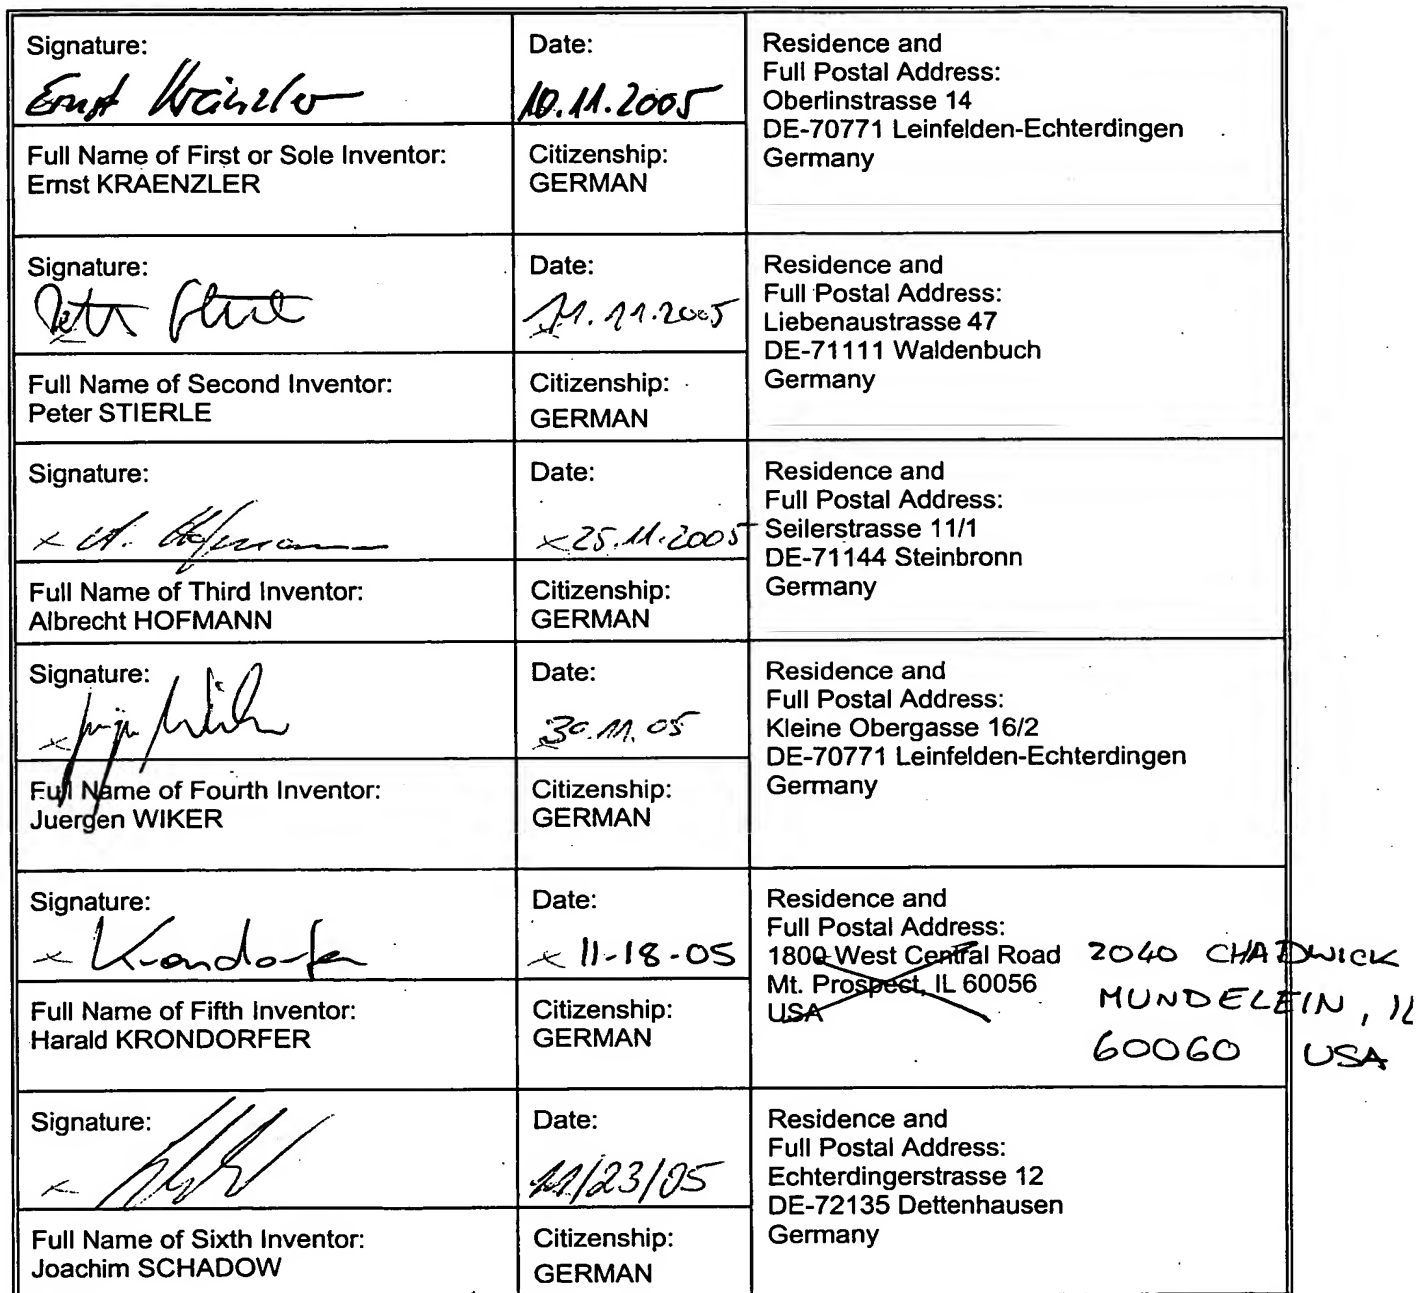 Signature:
Ernst Kränzler
Date:
10.11.2005
Residence and
Full Postal Address:
Oberlinstrasse 14
DE-70771 Leinfelden-Echterdingen
Germany
Full Name of First or Sole Inventor:
Ernst KRAENZLER
Citizenship:
GERMAN
Signature:
Date:
11.11.2005
Residence and
Full Postal Address:
Liebenaustrasse 47
DE-71111 Waldenbuch
Germany
Full Name of Second Inventor:
Peter STIERLE
Citizenship:
GERMAN
Signature:
x A. Hofmann
Date:
x 25.11.2005
Residence and
Full Postal Address:
Seilerstrasse 11/1
DE-71144 Steinbronn
Germany
Full Name of Third Inventor:
Albrecht HOFMANN
Citizenship:
GERMAN
Signature:
x
Date:
x 30.11.05
Residence and
Full Postal Address:
Kleine Obergasse 16/2
DE-70771 Leinfelden-Echterdingen
Germany
Full Name of Fourth Inventor:
Juergen WIKER
Citizenship:
GERMAN
Signature:
x Krondorfer
Date:
x 11-18-05
Residence and
Full Postal Address:
1800 West Central Road
Mt. Prospect, IL 60056
USA
2040 CHADWICK
MUNDELEIN, IL
60060 USA
Full Name of Fifth Inventor:
Harald KRONDORFER
Citizenship:
GERMAN
Signature:
x
Date:
11/23/05
Residence and
Full Postal Address:
Echterdingerstrasse 12
DE-72135 Dettenhausen
Germany
Full Name of Sixth Inventor:
Joachim SCHADOW
Citizenship:
GERMAN